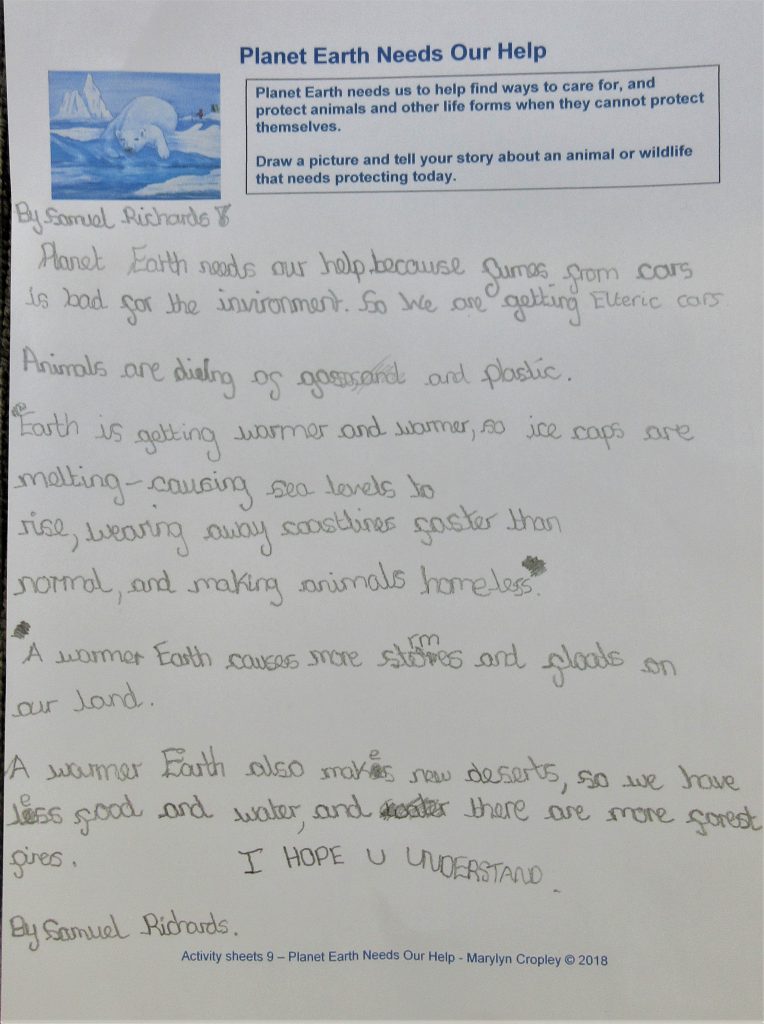 Planet Earth Needs Our Help
Planet Earth needs us to help find ways to care for, and
protect animals and other life forms when they cannot protect
themselves.
Draw a picture and tell your story about an animal or wildlife
that needs protecting today.
By Samuel Richards 8
Planet Earth needs our help because fumes from cars
is bad for the invironment. So We are getting Elteric cars
Animals are dieing of gas and plastic.
Earth is getting warmer and warmer, so ice caps are
melting - causing sea levels to
rise, wearing away coastlines faster than
normal, and making animals homeless.
A warmer Earth causes more stormes and floods on
our land.
A warmer Earth also makes new deserts, so we have
less food and water, and there are more forest
fires.
I HOPE U UNDERSTAND.
By Samuel Richards.
Activity sheets 9 – Planet Earth Needs Our Help - Marylyn Cropley © 2018